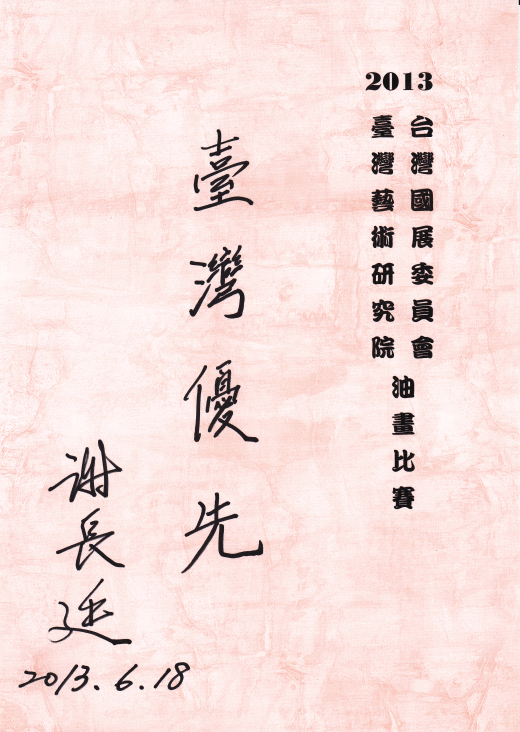 2013
台灣國展委員會
臺灣藝術研究院
油畫比賽
臺灣優先
謝長廷
2013.6.18